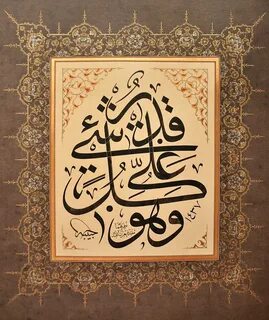 وهو على كل شيء قدير
١٤٣٧